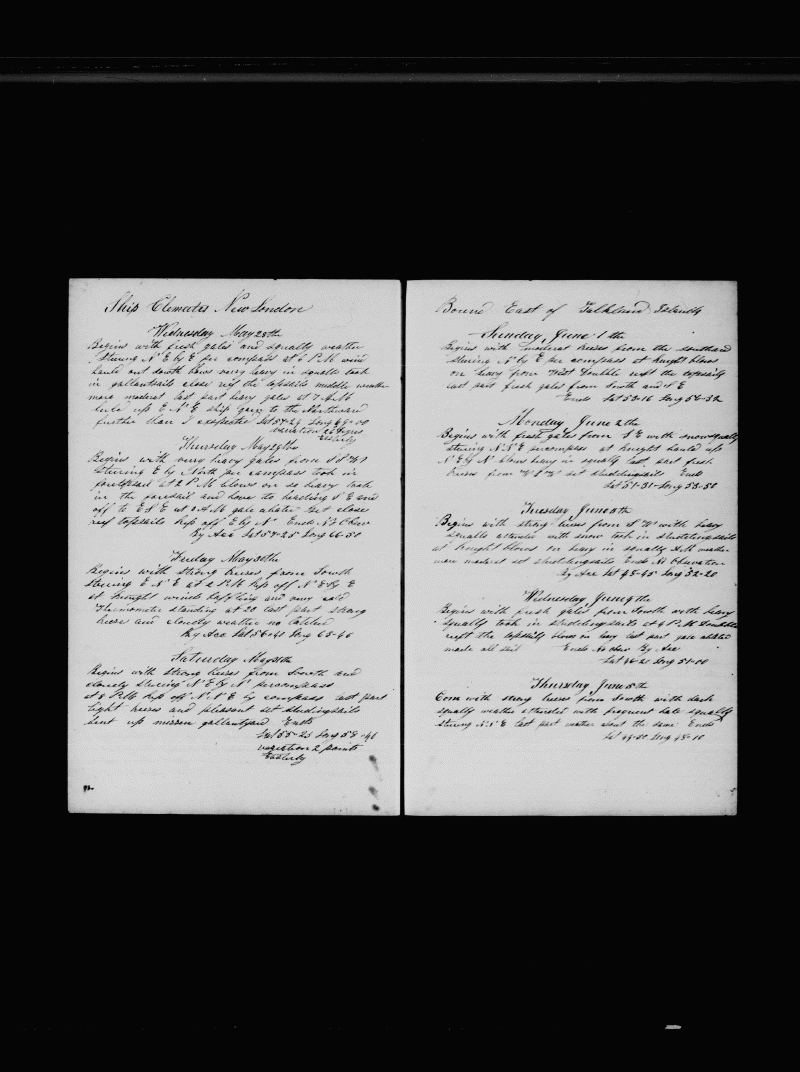 Ship Clematis New London
Wednesday May 28th
Begins with fresh gales and squally weather
stering N E by E per compass at 6 P.M wind
hauld out south blows very heavy in squalls took
in gallantsails close reef the topsails middle weather
more moderat last part heavy gales at 7 A.M
luft up E N E ship going to the Northward
further than I expected Lat 57-24 Long 69-00
variation 23 degrees
Easterly
Thursday May 29th
Begins with very heavy gales from S S W
stering E by North per compass took in
foretopsail at 2 P.M blows on so heavy took
in the foresail and hove to heading S E and
off to E S E at 2 A.M gale abates set close
reef topsails kep off E by N Ends No Obser
By Acc Lat 57-25 Long 66-50
Friday May 30th
Begins with strong breses from South
stering E N E at 2 P.M kep off N E by E
at knought winds baffling and very cold
Thermometer standing at 20 last part strong
brese and cloudy weather no
By Acc Lat 56-41 Long 63-40
Saturday May 31th
Begins with strong breses from South and
cloudy stering N E by N percompass
at 8 P.M kep off N N E by compass last part
light breses and pleasant set studingsails
sent up missen gallantyard Ends
Lat 55-23 Long 59-48
variation 2 points
Easterly
Bound East of Falkland Islands
Sunday June 1th
Begins with moderat breses from the southard
stering N by E per compass at knught blows
on heavy from West Doubble reeft the topsails
last part fresh gales from South and S E
Ends Lat 53-16 Long 56-32
Monday June 2th
Begins with fresh gales from S E with snowsqualls
stering N N E percompass at knught hauld up
N E by N blows heavy in squalls last part fresh
breses from W S W set studdingsails Ends
Lat 51-31 Long 53-50
Tuesday June 3th
Begins with strong breses from S W with heavy
squalls attended with snow took in studdingsails
at knught blows on heavy in squalls A.M weather
more moderat set studdingsails Ends No Observation
By Acc Lat 48-45 Long 52-20
Wednesday June 4th
Begins with fresh gales from South with heavy
squalls took in studdingsails at 4 P.M Doubble
reeft the topsails blows on heavy last part gale abated
made all sail Ends No Obser By Acc
Lat 46-21 Long 51-00
Thursday June 5th
Com with strong breses from South with dark
squally weather attended with frequent hale squalls
stering N N E last part weather about the same Ends
Lat 44-50 Long 48-10